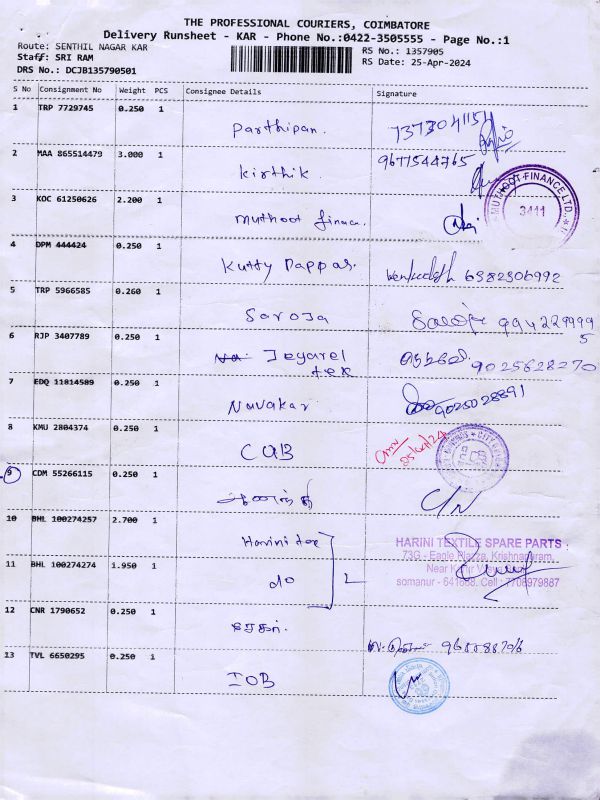 THE PROFESSIONAL COURIERS, COIMBATORE
Delivery Runsheet - KAR - Phone No.:0422-3505555 - Page No.:1
Route: SENTHIL NAGAR KAR
RS No.: 1357905
Staff: SRI RAM
RS Date: 25-Apr-2024
DRS No.: DCJB135790501
S No Consignment No Weight PCS Consignee Details Signature
1 TRP 7729745 0.250 1
Parthipan. 7373041154
2 MAA 865514479 3.000 1
Kirthik. 9677544765
3 KOC 61250626 2.200 1
muthoot finance.
MUTHOOT FINANCE LTD.
3411
4 DPM 444424 0.250 1
Kutty Pappas. 6382306992
5 TRP 5966585 0.260 1
Saroja சரோஜ 9942299995
6 RJP 3407789 0.250 1
Jeyarel
tex 9025628270
7 EDQ 11814589 0.250 1
Navakar 9025028891
8 KMU 2804374 0.250 1
CUB 25/04/24
9 CDM 55266115 0.250 1
ஆனந்தி C/N
10 BHL 100274257 2.700 1
Harini tex
HARINI TEXTILE SPARE PARTS
73G - Eagle Plazza, Krishnapuram,
11 BHL 100274274 1.950 1
do
Near
somanur - 641668. Cell : 7708979887
12 CNR 1790652 0.250 1
சேகர்.
13 TVL 6650295 0.250 1
IOB